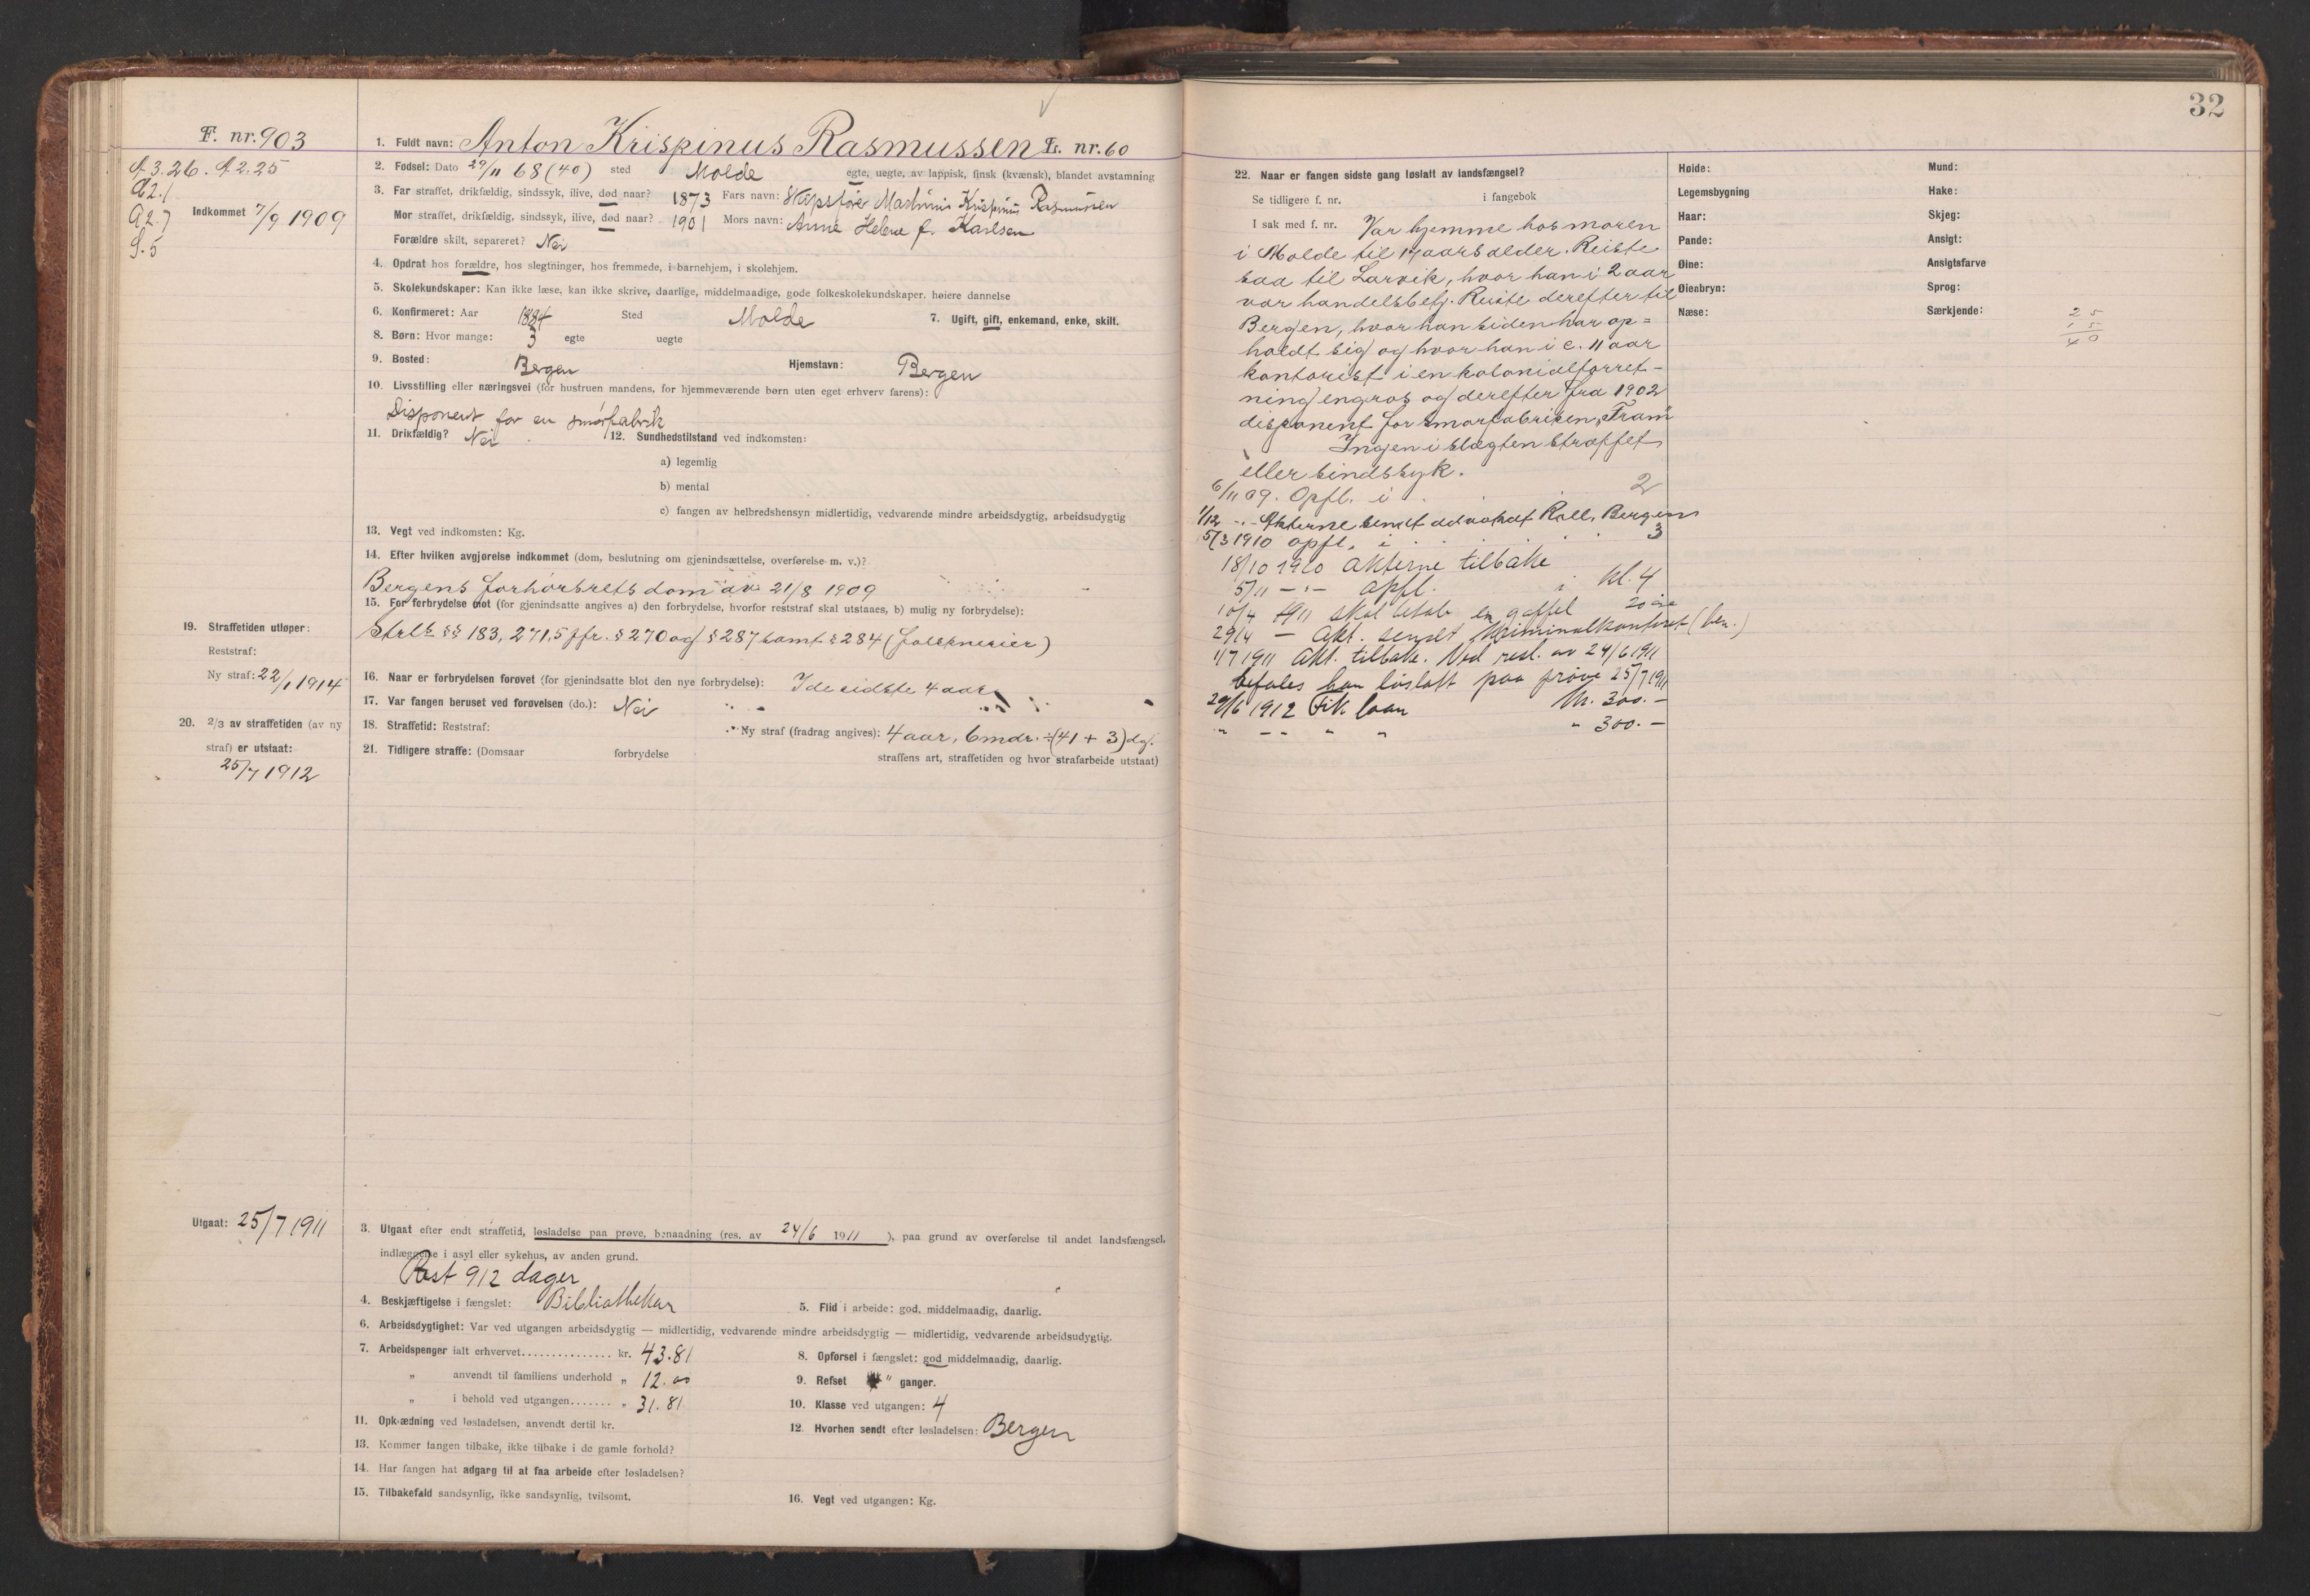 F. nr. 903
A 3.26. A 2.25
A 2.1
A 2.7
S. 5
Indkommet 7/9 1909
1. Fuldt navn: Anton Krispinus Rasmussen L. nr. 60
2. Fødsel: Dato 29/11 68 (40) sted Molde egte, uegte, av lappisk, finsk (kvænsk), blandet avstamning
3. Far straffet, drikfældig, sindssyk, ilive, død naar? 1873 Fars navn: Skipsfører Martinus Krispinus Rasmussen
Mor straffet, drikfældig, sindssyk, ilive, død naar? 1901 Mors navn: Anne Helene f. Karlsen
Forældre skilt, separeret? Nei
4. Opdrat hos forældre, hos slegtninger, hos fremmede, i barnehjem, i skolehjem.
5. Skolekundskaper: Kan ikke læse, kan ikke skrive, daarlige, middelmaadige, gode folkeskolekundskaper, høiere dannelse
6. Konfirmeret: Aar 1884 Sted Molde 7. Ugift, gift, enkemand, enke, skilt.
8. Børn: Hvor mange: 3 egte uegte
9. Bosted: Bergen Hjemstavn: Bergen
10. Livsstilling eller næringsvei (for hustruen mandens, for hjemmeværende børn uten eget erhverv farens):
Disponent for en smørfabrik
11. Drikfældig? Nei 12. Sundhedstilstand ved indkomsten:
a) legemlig
b) mental
c) fangen av helbredshensyn midlertidig, vedvarende mindre arbeidsdygtig, arbeidsudygtig
13. Vegt ved indkomsten: Kg.
14. Efter hvilken avgjørelse indkommet (dom, beslutning om gjenindsættelse, overførelse m. v.)?
Bergens forhørsrets dom av 21/8 1909
15. For forbrydelse mot (for gjenindsatte angives a) den forbrydelse, hvorfor reststraf skal utstaaes, b) mulig ny forbrydelse):
Strl's §§ 183, 271,5 jfr. § 270 og § 287 samt § 284 (falsknerier)
19. Straffetiden utløper:
Reststraf:
Ny straf: 22/1 1914
16. Naar er forbrydelsen forøvet (for gjenindsatte blot den nye forbrydelse): I de sidste 4 aar
17. Var fangen beruset ved forøvelsen (do.): Nei
20. 2/3 av straffetiden (av ny straf) er utstaat:
25/7 1912
18. Straffetid: Reststraf: Ny straf (fradrag angives): 4 aar, 6 mdr. ÷ (41 + 3) dg.
21. Tidligere straffe: (Domsaar forbrydelse straffens art, straffetiden og hvor strafarbeide utstaat)
Utgaat: 25/7 1911
3. Utgaat efter endt straffetid, løsladelse paa prøve, benaadning (res. av 24/6 1911), paa grund av overførelse til andet landsfængsel,
indlæggelse i asyl eller sykehus, av anden grund.
Rest 912 dager
4. Beskjæftigelse i fængslet: Bibliothekar 5. Flid i arbeide: god, middelmaadig, daarlig.
6. Arbeidsdygtighet: Var ved utgangen arbeidsdygtig — midlertidig, vedvarende mindre arbeidsdygtig — midlertidig, vedvarende arbeidsudygtig.
7. Arbeidspenger ialt erhvervet............... kr. 43.81 8. Opførsel i fængslet: god middelmaadig, daarlig.
„ anvendt til familiens underhold „ 12.00 9. Refset " ganger.
„ i behold ved utgangen....... „ 31.81 10. Klasse ved utgangen: 4
11. Opklædning ved løsladelsen, anvendt dertil kr. 12. Hvorhen sendt efter løsladelsen: Bergen
13. Kommer fangen tilbake, ikke tilbake i de gamle forhold?
14. Har fangen hat adgang til at faa arbeide efter løsladelsen?
15. Tilbakefald sandsynlig, ikke sandsynlig, tvilsomt. 16. Vegt ved utgangen: Kg.
32
22. Naar er fangen sidste gang løslatt av landsfængsel?
Se tidligere f. nr. i fangebok
I sak med f. nr. Var hjemme hos moren
i Molde til 17 aars alder. Reiste
saa til Larvik, hvor han i 2 aar
var handelsbetj. Reiste derefter til
Bergen, hvor han siden har op=
holdt sig og hvor han i c. 11 aar
kontorist i en kolonialforret-
ning engros og derefter fra 1902
disponent for smørfabriken „Fram"
Ingen i slægten straffet
eller sindssyk.
6/11 09. Opfl. i 2
1/12 -"- Akterne sendt advokat Roll, Bergen
5/3 1910 opfl. i 3
18/10 1910 akterne tilbake
5/11 -"- opfl. i kl. 4
10/4 1911 skal betale en gaffel 20 øre
29/4 — Akt. sendt Kriminalkontoret (ben.)
1/7 1911 Akt. tilbake. Ved resl. av 24/6 1911
befales han løslatt paa prøve 25/7 1911
29/6 1912 Fik laan Kr. 300.-
" -- " " " 300.-
Høide: Mund:
Legemsbygning Hake:
Haar: Skjeg:
Pande: Ansigt:
Øine: Ansigtsfarve
Øienbryn: Sprog:
Næse: Særkjende:
25
15
40